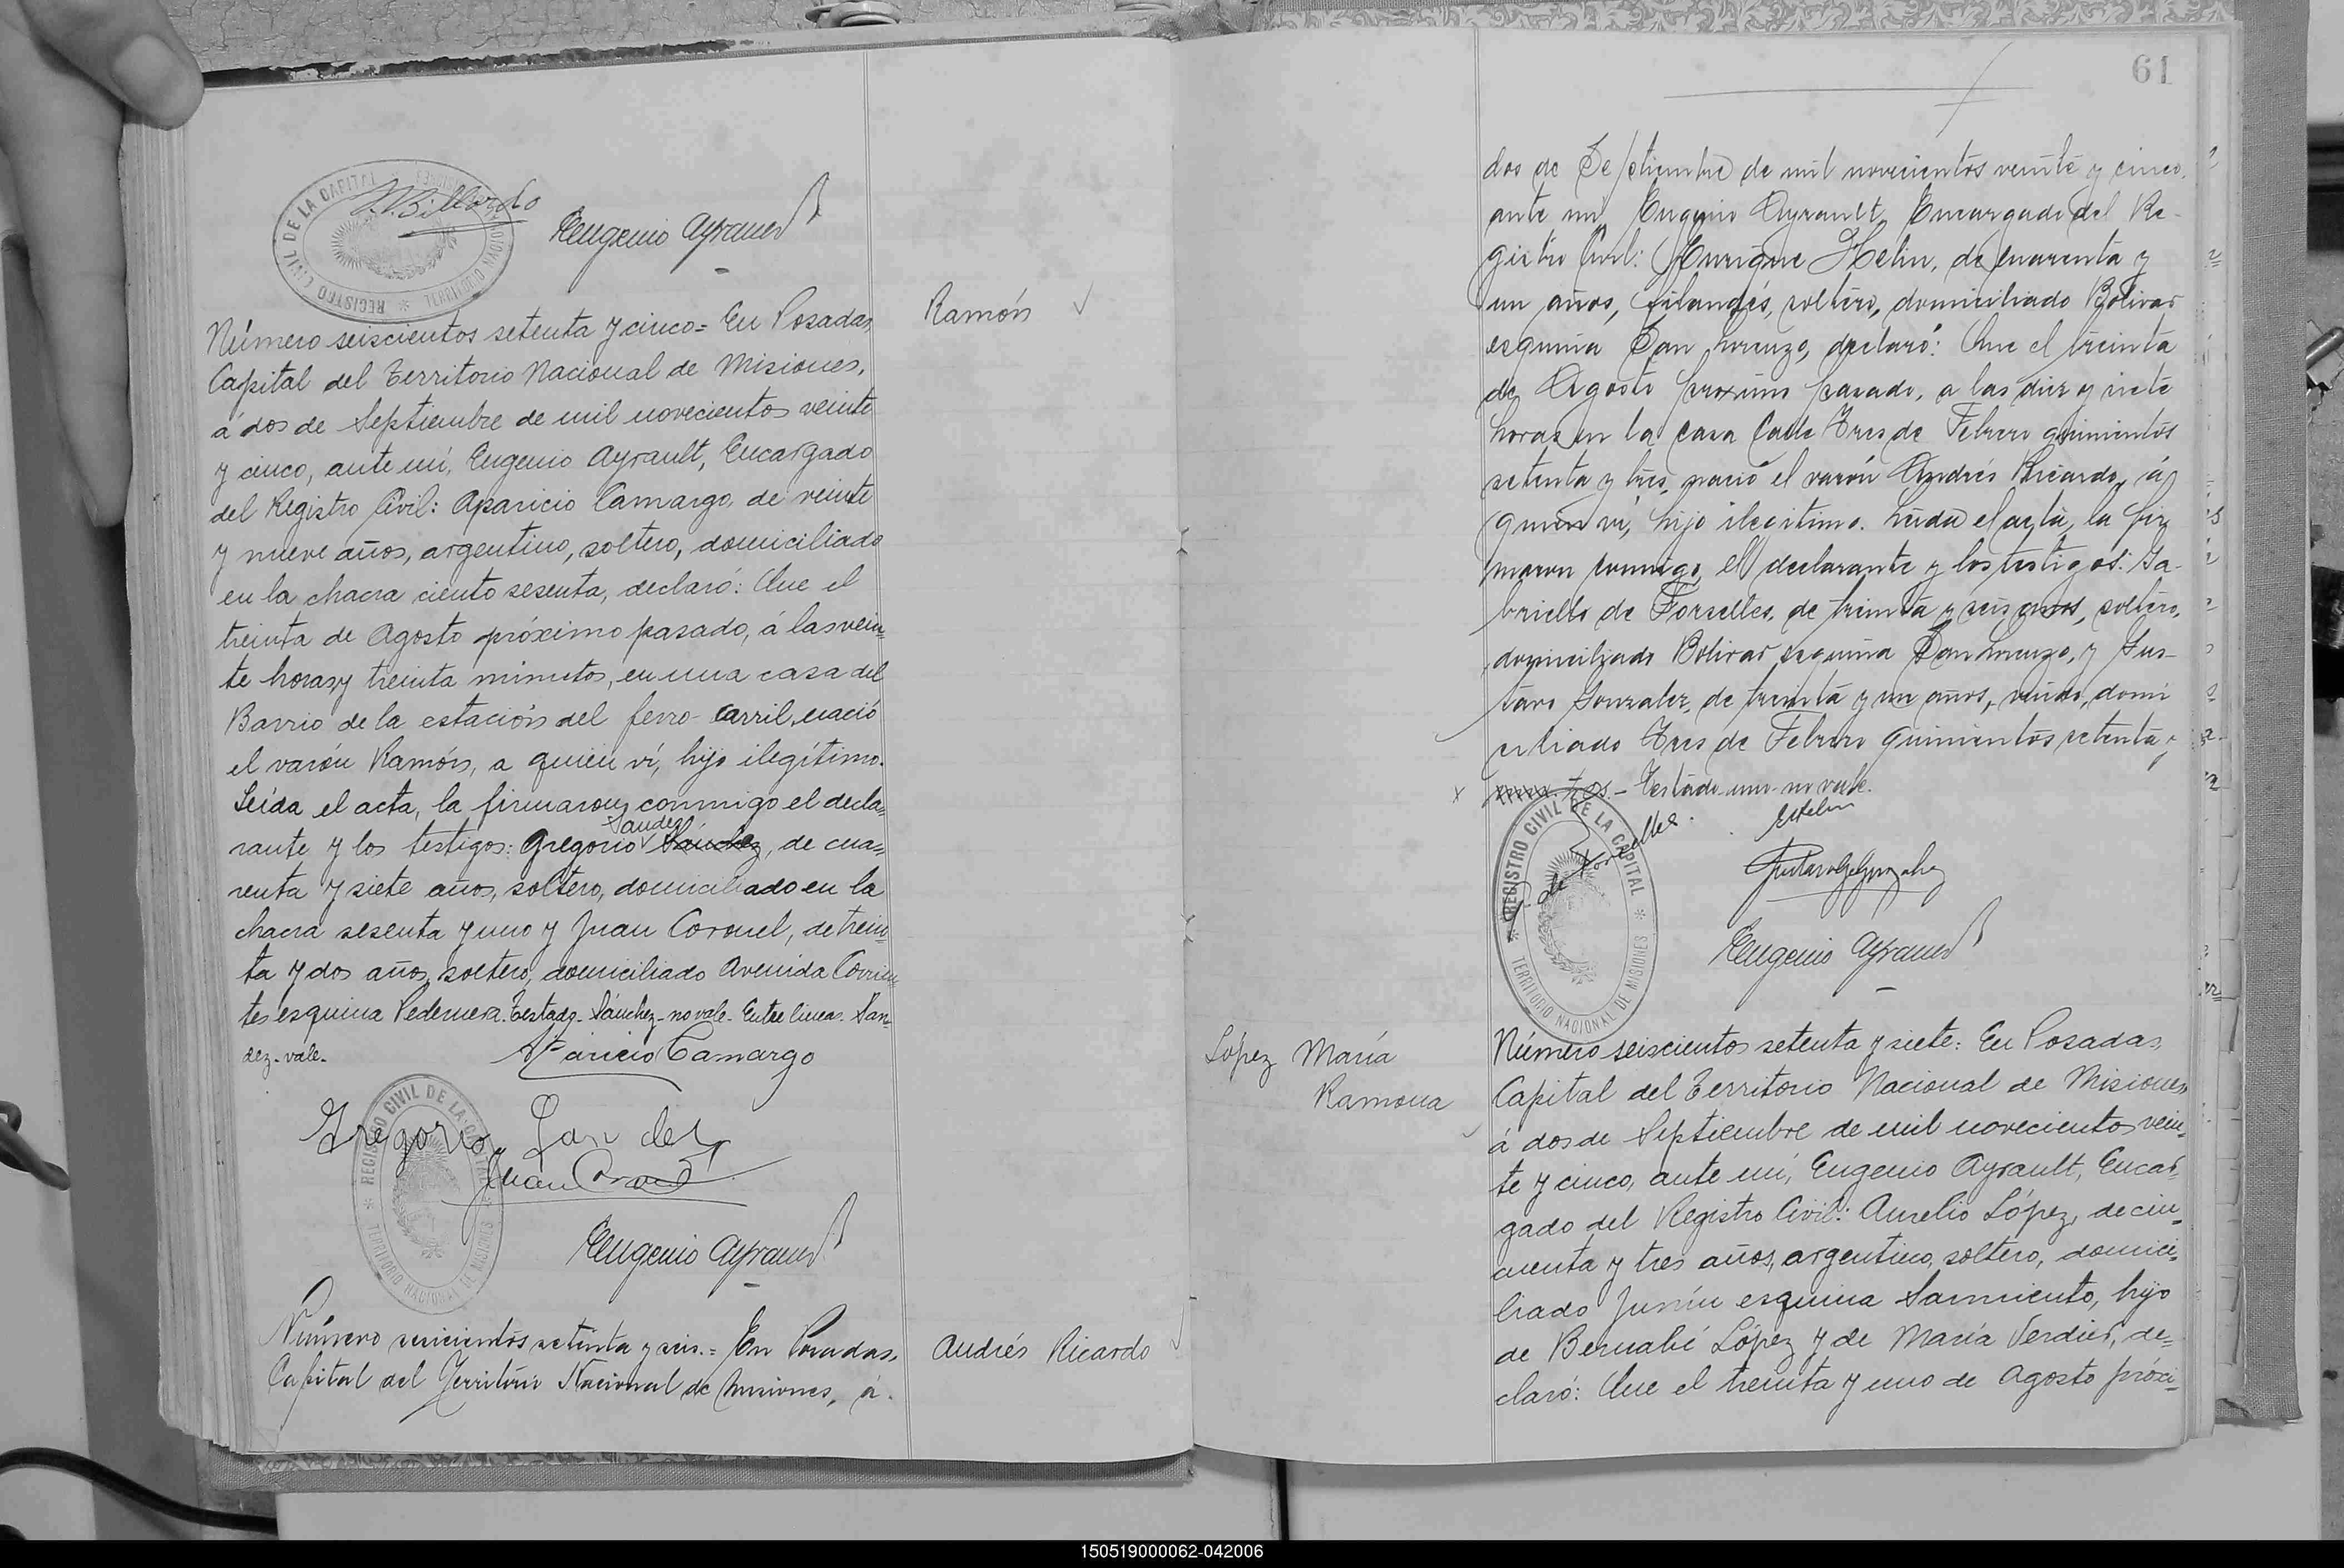 REGISTRO CIVIL DE LA CAPITAL
Eugenio Ayrault
Número seiscientos setenta y cinco = En Posadas,
Capital del Territorio Nacional de Misiones,
á dos de Septiembre de mil novecientos veinte
y cinco, ante mí, Eugenio Ayrault, Encargado
del Registro Civil: Aparicio Camargo, de veinte
y nueve años, argentino, soltero, domiciliado
en la chacra ciento sesenta, declaró: Que el
treinta de Agosto próximo pasado, á las vein=
te horas y treinta minutos, en una casa del
Barrio de la estación del ferro-carril, nació
el varón Ramón, a quien ví, hijo ilegítimo.
Leída el acta, la firmaron conmigo el decla=
rante y los testigos: Gregorio Sandez Sánchez, de cua=
renta y siete años, soltero, domiciliado en la
chacra sesenta y uno y Juan Coronel, de trein=
ta y dos años, soltero, domiciliado Avenida Corrien=
tes esquina Pedernera. Testado- Sánchez- no vale- Entre líneas- San=
dez- vale-
Aparicio Camargo
Gregorio Sandez
Juan Coronel
REGISTRO CIVIL DE LA CAPITAL
TERRITORIO NACIONAL DE MISIONES
Eugenio Ayrault
Número seiscientos setenta y seis.= En Posadas,
Capital del Territorio Nacional de Misiones, á
Ramón
Andrés Ricardo
61
dos de Septiembre de mil novecientos veinte y cinco,
ante mí, Eugenio Ayrault, Encargado del Re-
gistro Civil: Enrique Helin, de cuarenta y
un años, filandés, soltero, domiciliado Bolivar
esquina San Lorenzo, declaró: Que el treinta
de Agosto proximo pasado, a las diez y siete
horas en la casa Calle Tres de Febrero quinientos
setenta y tres, nació el varón Andrés Ricardo, á
quien ví, hijo ilegítimo. Leída el acta, la fir
maron conmigo, el declarante y los testigos: Ga-
briello de Forselles, de treinta y seis años, soltero,
domiciliado Bolivar esquina San Lorenzo, y Gus-
tavo Gonzalez, de treinta y un años, viudo, domi
ciliado Tres de Febrero quinientos setenta y
tres.- Testado- uno- no vale.
G. de Forselles
REGISTRO CIVIL DE LA CAPITAL
TERRITORIO NACIONAL DE MISIONES
Eugenio Ayrault
López María
Ramona
Número seiscientos setenta y siete: En Posadas,
Capital del Territorio Nacional de Misiones,
á dos de Septiembre de mil novecientos vein=
te y cinco, ante mí, Eugenio Ayrault, Encar=
gado del Registro Civil: Aurelio López, de cin=
cuenta y tres años, argentino, soltero, domici=
liado Junín esquina Sarmiento, hijo
de Bernabé López y de María Verdier, de=
claró: Que el treinta y uno de Agosto próxi=
150519000062-042006